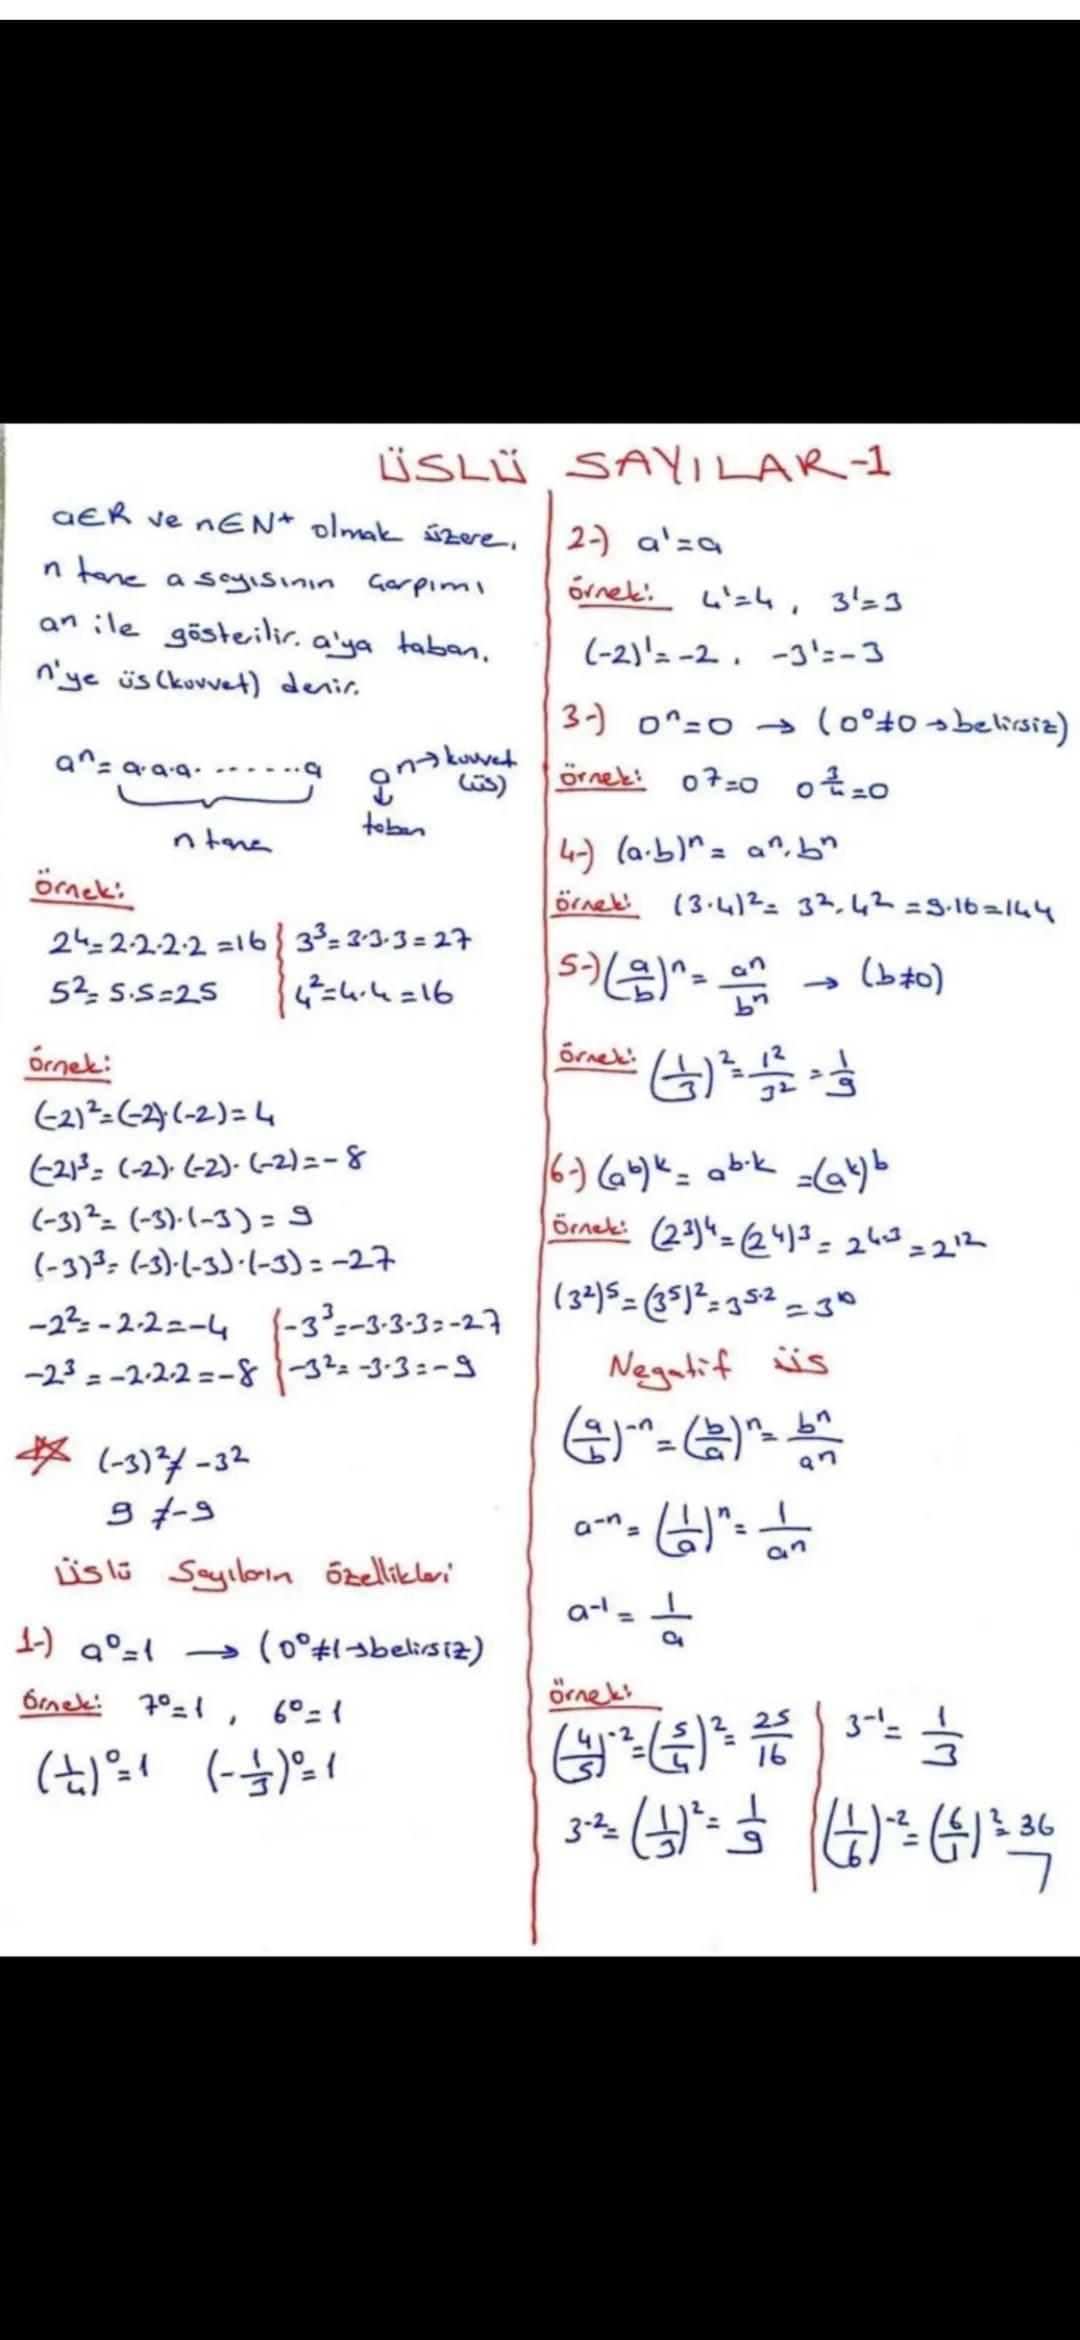 ÜSLÜ SAYILAR-1
a∈R ve n∈N⁺ olmak üzere,
n tane a sayısının çarpımı
an ile gösterilir. a'ya taban,
n'ye üs (kuvvet) denir.
aⁿ = a·a·a· ....... a
n tane
aⁿ → kuvvet (üs)
↓
taban
örnek:
2⁴ = 2·2·2·2 = 16
3³ = 3·3·3 = 27
5² = 5·5 = 25
4² = 4·4 = 16
örnek:
(-2)² = (-2)·(-2) = 4
(-2)³ = (-2)·(-2)·(-2) = -8
(-3)² = (-3)·(-3) = 9
(-3)³ = (-3)·(-3)·(-3) = -27
-2² = -2·2 = -4
-3³ = -3·3·3 = -27
-2³ = -2·2·2 = -8
-3² = -3·3 = -9
(-3)² ≠ -3²
9 ≠ -9
Üslü Sayıların özellikleri
1-) a⁰ = 1 → (0⁰ ≠ 1 → belirsiz)
örnek: 7⁰ = 1, 6⁰ = 1
(1/4)⁰ = 1 (-1/3)⁰ = 1
2-) a¹ = a
örnek: 4¹ = 4, 3¹ = 3
(-2)¹ = -2, -3¹ = -3
3-) 0ⁿ = 0 → (0⁰ ≠ 0 → belirsiz)
örnek: 0⁷ = 0 0^(3/4) = 0
4-) (a·b)ⁿ = aⁿ·bⁿ
örnek: (3·4)² = 3²·4² = 9·16 = 144
5-) (a/b)ⁿ = aⁿ/bⁿ → (b≠0)
örnek: (1/3)² = 1²/3² = 1/9
6-) (a^b)^k = a^(b·k) = (a^k)^b
örnek: (2³)⁴ = (2⁴)³ = 2^(4·3) = 2¹²
(3²)⁵ = (3⁵)² = 3^(5·2) = 3¹⁰
Negatif üs
(a/b)⁻ⁿ = (b/a)ⁿ = bⁿ/aⁿ
a⁻ⁿ = (1/a)ⁿ = 1/aⁿ
a⁻¹ = 1/a
örnek:
(4/5)⁻² = (5/4)² = 25/16
3⁻¹ = 1/3
3⁻² = (1/3)² = 1/9
(1/6)⁻² = (6/1)² = 36